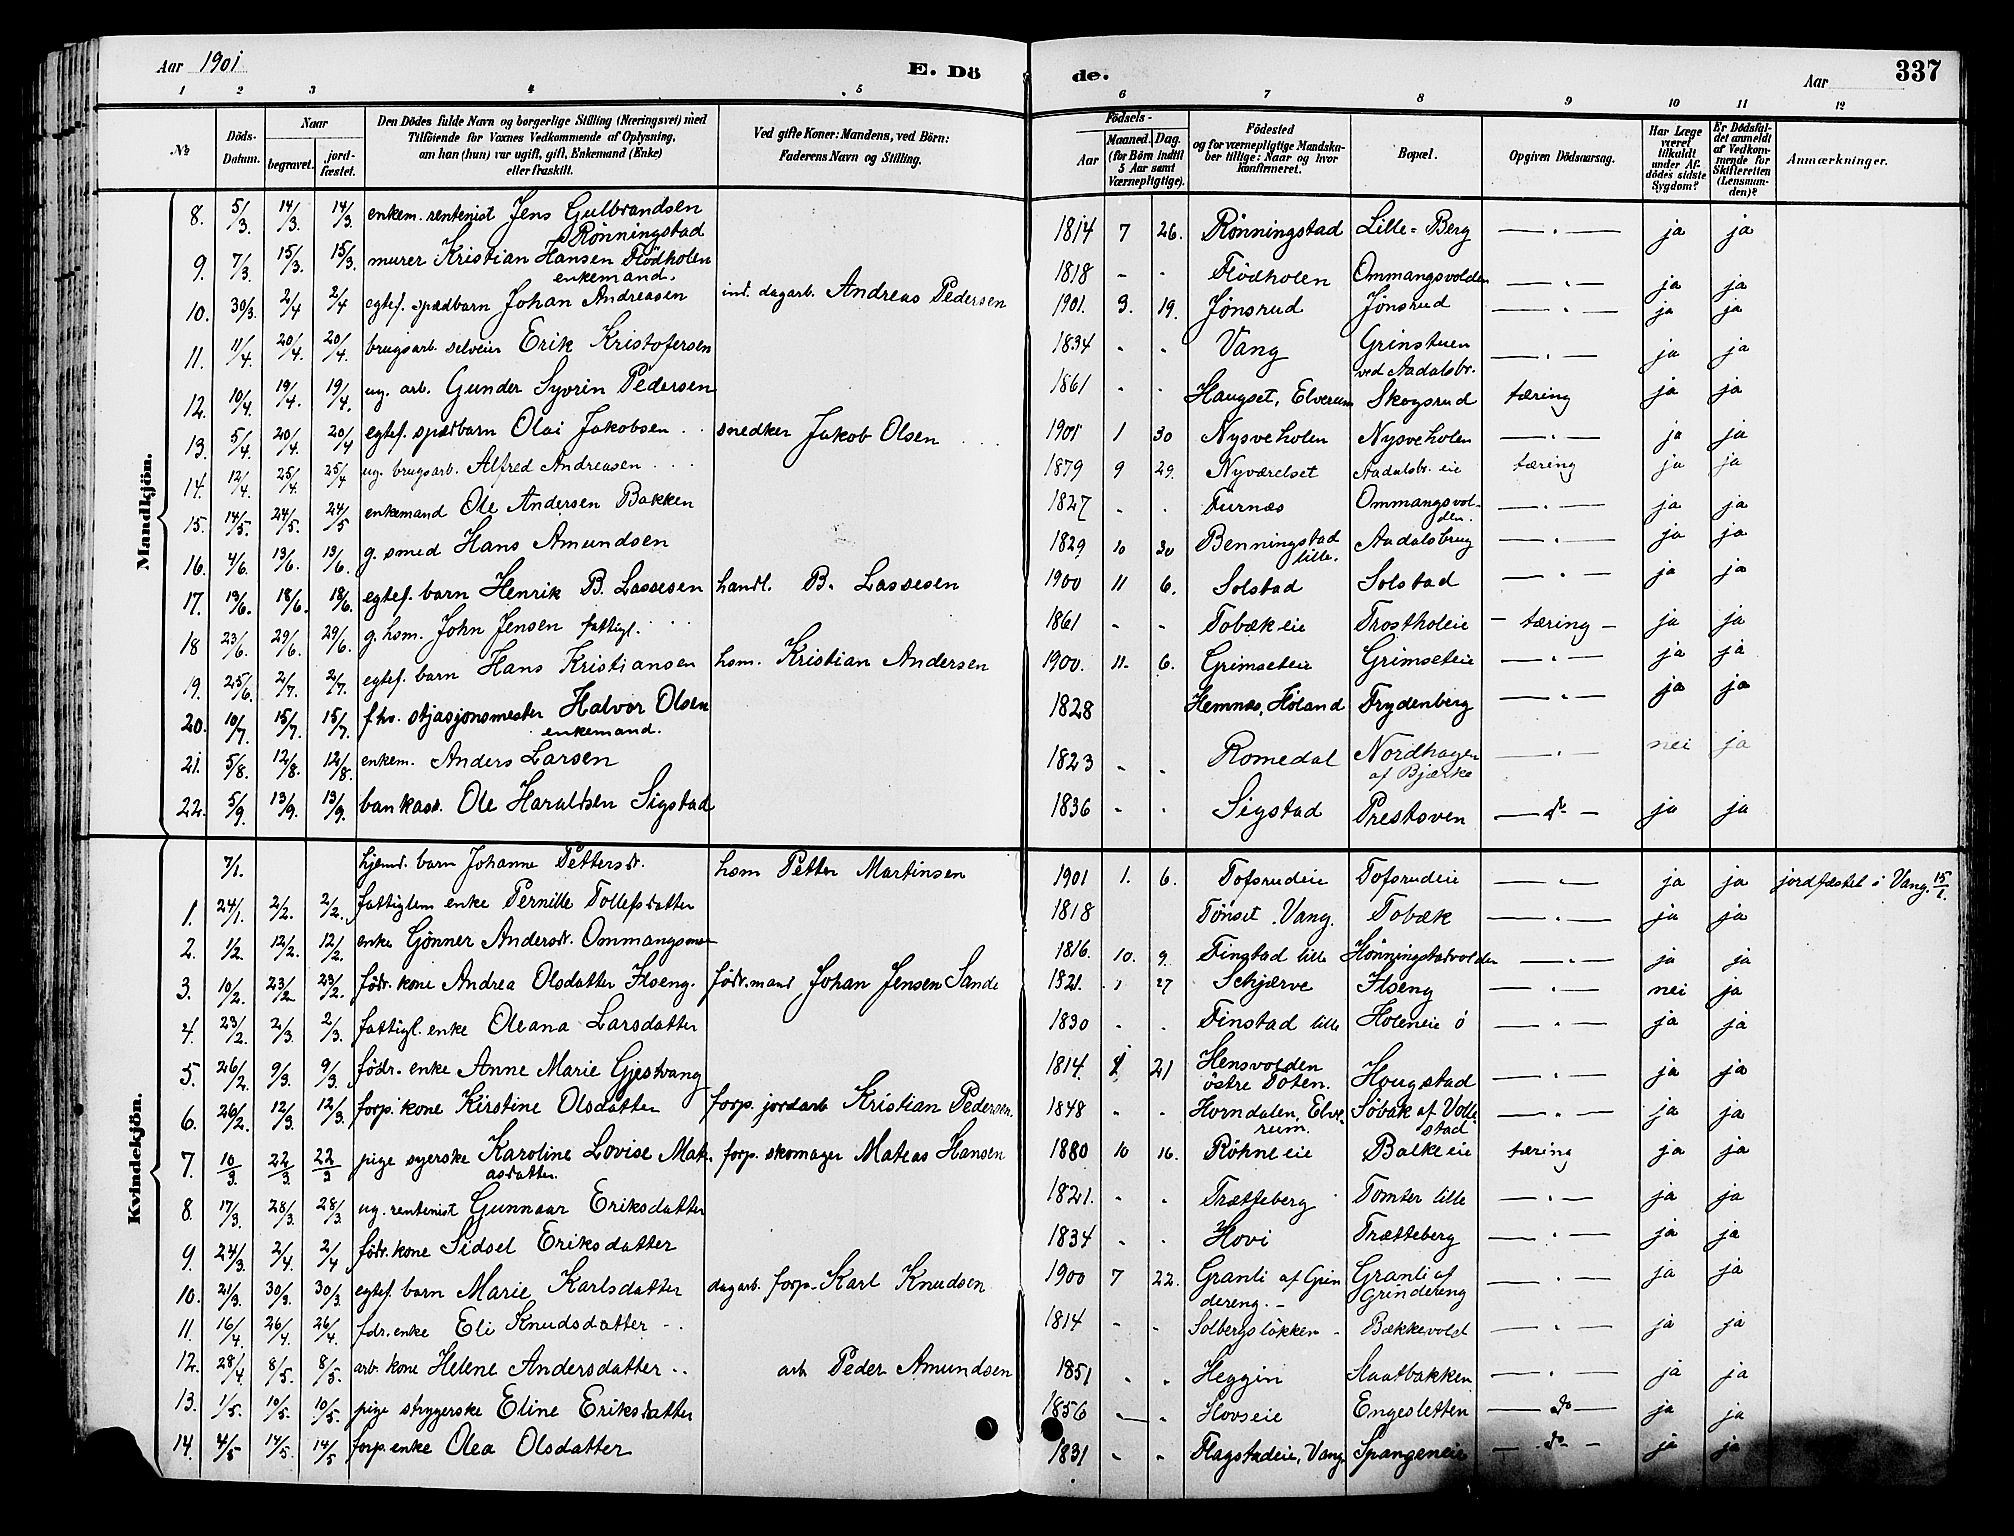 Aar 1901
E. Dö
de.
Aar
337
1 2 3 4 5 6 7 8 9 10 11 12
№
Döds-Datum.
Naar
begravet.
jord-fæstet.
Den Dödes fulde Navn og borgerlige Stilling (Næringsvei) med
Tilföiende for Voxnes Vedkommende af Oplysning,
om han (hun) var ugift, gift, Enkemand (Enke)
eller fraskilt.
Ved gifte Koner: Mandens, ved Börn:
Faderens Navn og Stilling.
Födsels-
Aar
Maaned. Dag.
(for Börn indtil 5 Aar samt Værnepligtige).
Födested
og for værnepligtige Mandska-
ber tillige: Naar og hvor
konfirmeret.
Bopæl.
Opgiven Dödsaarsag.
Har Læge været tilkaldt under Af-dödes sidste Sygdom?
Er Dödsfal-det anmeldt af Vedkom-mende for Skifteretten (Lensman-den)?
Anmærkninger.
Mandkjön.
8. 5/3. 14/3. 14/3. enkem. rentenist Jens Gulbrandsen Rønningstad 1814 7 26. Rønningstad Lille-Berg —„— ja ja
9. 7/3. 15/3. 15/3. murer Kristian Hansen Flödholen enkemand. 1818 - - Flödholen Ommangsvolden —„— ja ja
10. 30/3. 2/4 2/4 egtef. spædbarn Johan Andreasen ind. dagarb. Andreas Pedersen 1901. 3. 19. Jønsrud Jønsrud —„— ja ja
11. 11/4 20/4. 20/4. brugsarb. selveier Erik Kristofersen 1834 - - Vang Grinstuen ved Aadalsbr. —„— ja ja
12. 10/4. 19/4. 19/4. ug. arb. Gunder Syvrin Pedersen 1861 - - Haugset, Elverum Skogsrud tæring ja ja
13. 5/4. 20/4. 20/4 egtef. spædbarn Olai Jakobsen snedker Jakob Olsen 1901 1 30 Nysveholen Nysveholen —„— ja ja
14. 12/4. 25/4. 25/4 ug. brugsarb. Alfred Andreasen 1879 9 29. Nyværelset Aadalsbr. eie tæring ja ja
15. 14/5. 24/5. 24/5 enkemand Ole Andersen Bakken 1827 - - Furnæs Ommangsvol-den. —„— ja ja
16. 4/6. 13/6. 13/6. g. smed Hans Amundsen 1829 10 30 Benningstad lille. Aadalsbrug ja ja
17. 13/6. 18/6. 18/6. egtef. barn Henrik B. Lassesen handl. B. Lassesen 1900 11 6. Solstad Solstad —„— ja ja
18 23/6. 29/6. 29/6. g. hsm. John Jensen fattigl. 1861 - - Tobæk eie Trostholeie - tæring - ja ja
19. 25/6. 2/7. 2/7. egtef. barn Hans Kristiansen hsm. Kristian Andersen 1900. 11. 6. Grimseteie Grimseteie —„— ja ja
20. 10/7. 15/7. 15/7. fhv. stjasjonsmester Halvor Olsen enkemand. 1828 Hemnæs, Høland Frydenberg —„— ja ja
21. 5/8. 12/8. 12/8. enkem. Anders Larsen 1823 - - Romedal Nordhagen af Bjærke —„— nei ja
22. 5/9. 13/9. 13/9. bankass. Ole Haraldsen Sigstad 1836 - - Sigstad Prestoven —do— ja ja
Kvindekjön.
7/1. hjemd. barn Johanne Pettersdr. hsm Petter Martinsen 1901 1. 6. Tofsrudeie Tofsrudeie —„— ja ja jordfæstet i Vang. 15/1.
1. 24/1. 2/2. 2/2. fattiglem enke Pernille Tollefsdatter 1818 Tönset. Vang. Tobæk —„— ja ja
2. 1/2. 12/2. 12/2. enke Gönner Andersdr. 1816. 10. 9. Finstad lille Hönningstadvolden —„— ja ja
3. 10/2. 23/2 23/2. födr. kone Andrea Olsdatter Ilseng. födr. mand Johan Jensen Sande 1821. 1 27 Schjærve Ilseng —„— nei ja
4. 23/2. 2/3. 2/3. fattigl. enke Oleana Larsdatter 1830 - - Finstad lille Holeneie ö —„— ja ja
5. 26/2. 9/3. 9/3. födr. enke Anne Marie Gjestvang 1814. 21 Hensvolden östre Toten. Hougstad —„— ja ja
6. 26/2. 12/3. 12/3. forp. kone Kirstine Olsdatter forp. jordarb Kristian Pedersen. 1848 - - Horndalen, Elve-rum. Söbak af Volle-stad —„— ja ja
7. 10/3. 22/3 22/3 pige syerske Karoline Lovise Mat-asdatter. forp. skomager Mateas Hansen 1880 10 16. Röhneeie Balkeeie tæring ja ja
8. 17/3. 28/3. 28/3. ug. rentenist Gunnaar Eriksdatter 1821. - - Trætteberg Tomter lille —„— ja ja
9. 24/3. 2/4. 2/4 födr. kone Sidsel Eriksdatter 1834 - - Hovi Trætteberg —„— ja ja
10. 21/3. 30/3. 30/3. egtef. barn Marie Karlsdatter dagarb. forp. Karl Knudsen 1900 7 22. Granli af Grin dereng. Granli af Grindereng —„— ja ja
11. 16/4. 26/4. 26/4. fdr. enke Eli Knudsdatter 1814 - - Solbergslökken Bækkevold —„— ja ja
12. 28/4 8/5. 8/5. arb. kone Helene Andersdatter arb Peder Amundsen 1851 - - Heggin Slaatbakken —„— ja ja
13. 1/5. 10/5. 10/5. pige strygerske Eline Eriksdatter 1856 - - Hovseie Engesletten —do— ja ja
14. 4/5 14/5. 14/5 forp. enke Olea Olsdatter 1831 - - Flagstadeie, Vang. Spangeneie —do— ja ja